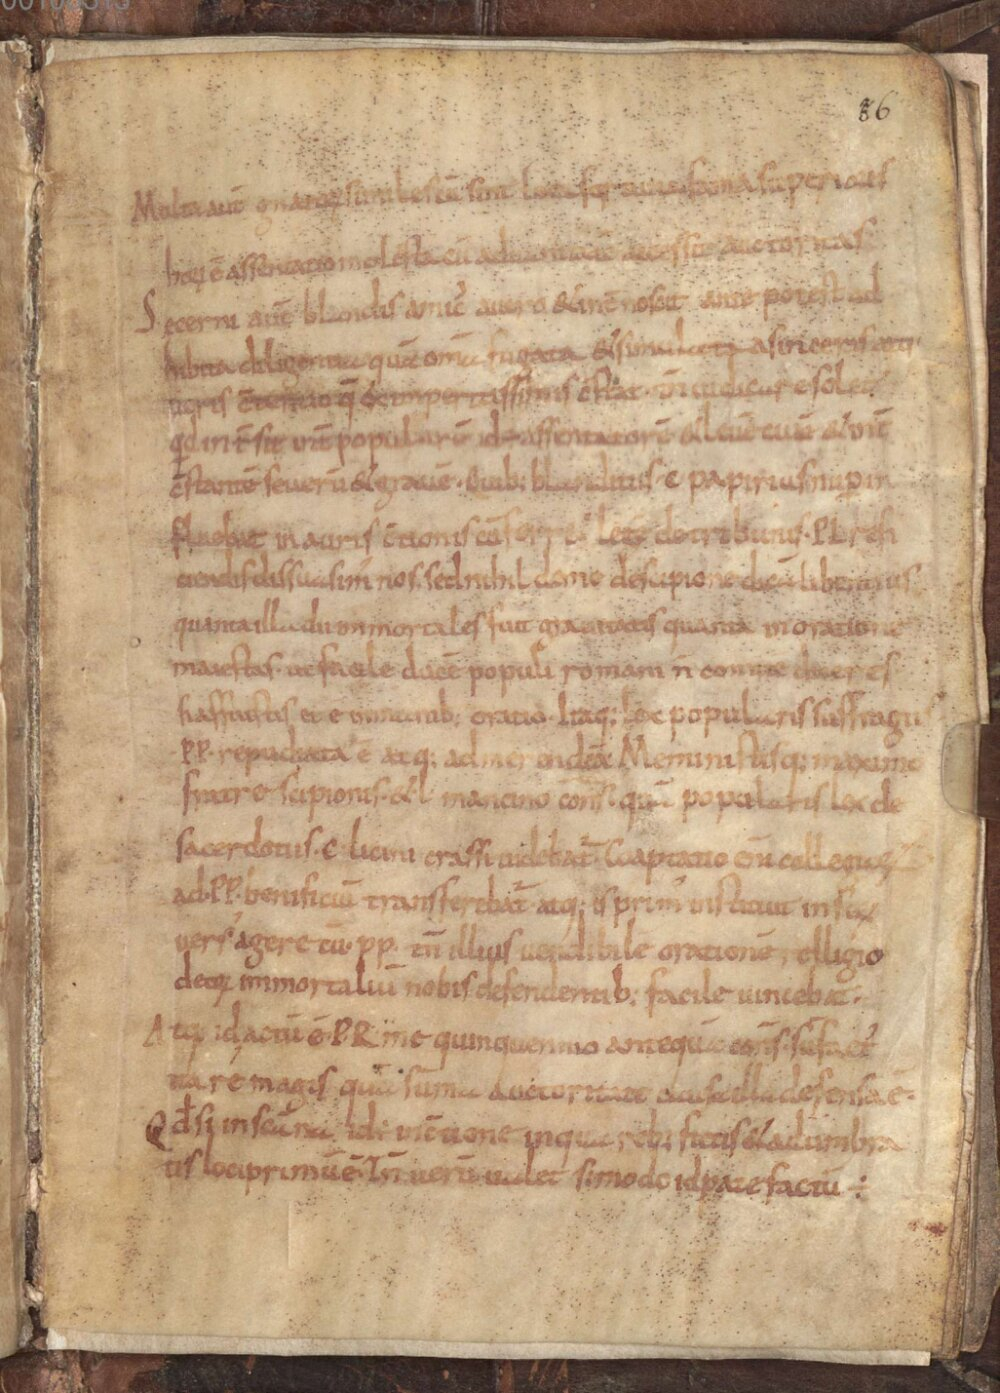 00103315
86
Multi aut̄ gnatoꝝ similes cū sint loco fortuna forma superioris
hoꝝ ē assentatio molesta cū ad accessit auctoritas
Secerni aut̄ blandus amic' a uero & int̄nosci tante potest ad
hibita diligentia quā om̄ia fucata & simulata a sinceris atq;
ueris c̄tentio q̄ ex imperitissimis c̄stat tn̄ iudicare solet
qd int̄ sit int̄ popularē id÷ assentatorē & leuē ciuē & int̄
c̄stantē seuerū & grauē. Quib; blanditiis c papirius nup in
fluebat in auris c̄tionis cū ferre legē de tribunis. PL. refi
ciendis dissuasim' nos. sed nihil de me de scipione dicā libentius
quanta illi dii immortales fuit grauitatis quanta in oratione
maiestas ut facile ducē populi romani n̄ comite diceres
si affuistis et ē in manib; oratio. Itaq; lex popularis suffragiis
PP. repudiata ē atq; ad me ondeā. Meministis q; maximo
fratre scipionis. & l mancino cons̄. quā popularis lex de
sacerdotiis. C. licini crassi uidebat̄. Coaptatio em̄ collegioꝝ
ad. PP. benificiū transferebat̄ atq; is prim' instituit in foꝝ
uers' agere cū. pp. tn̄ illius uendibilē orationē relligio
deoꝝ immortaliū nobis defendentib; facile uincebat.
Atq; id actū ē. P.R me quinquennio antequā cons. sū fact'
ita re magis quā suma auctoritate causa illa defensa ē.
Qd̄ si in scæna idē in c̄tione in qua reb; fictis & adumbra
tis loci primū ē. Tn̄ uerū ualet si modo id patefactū ÷